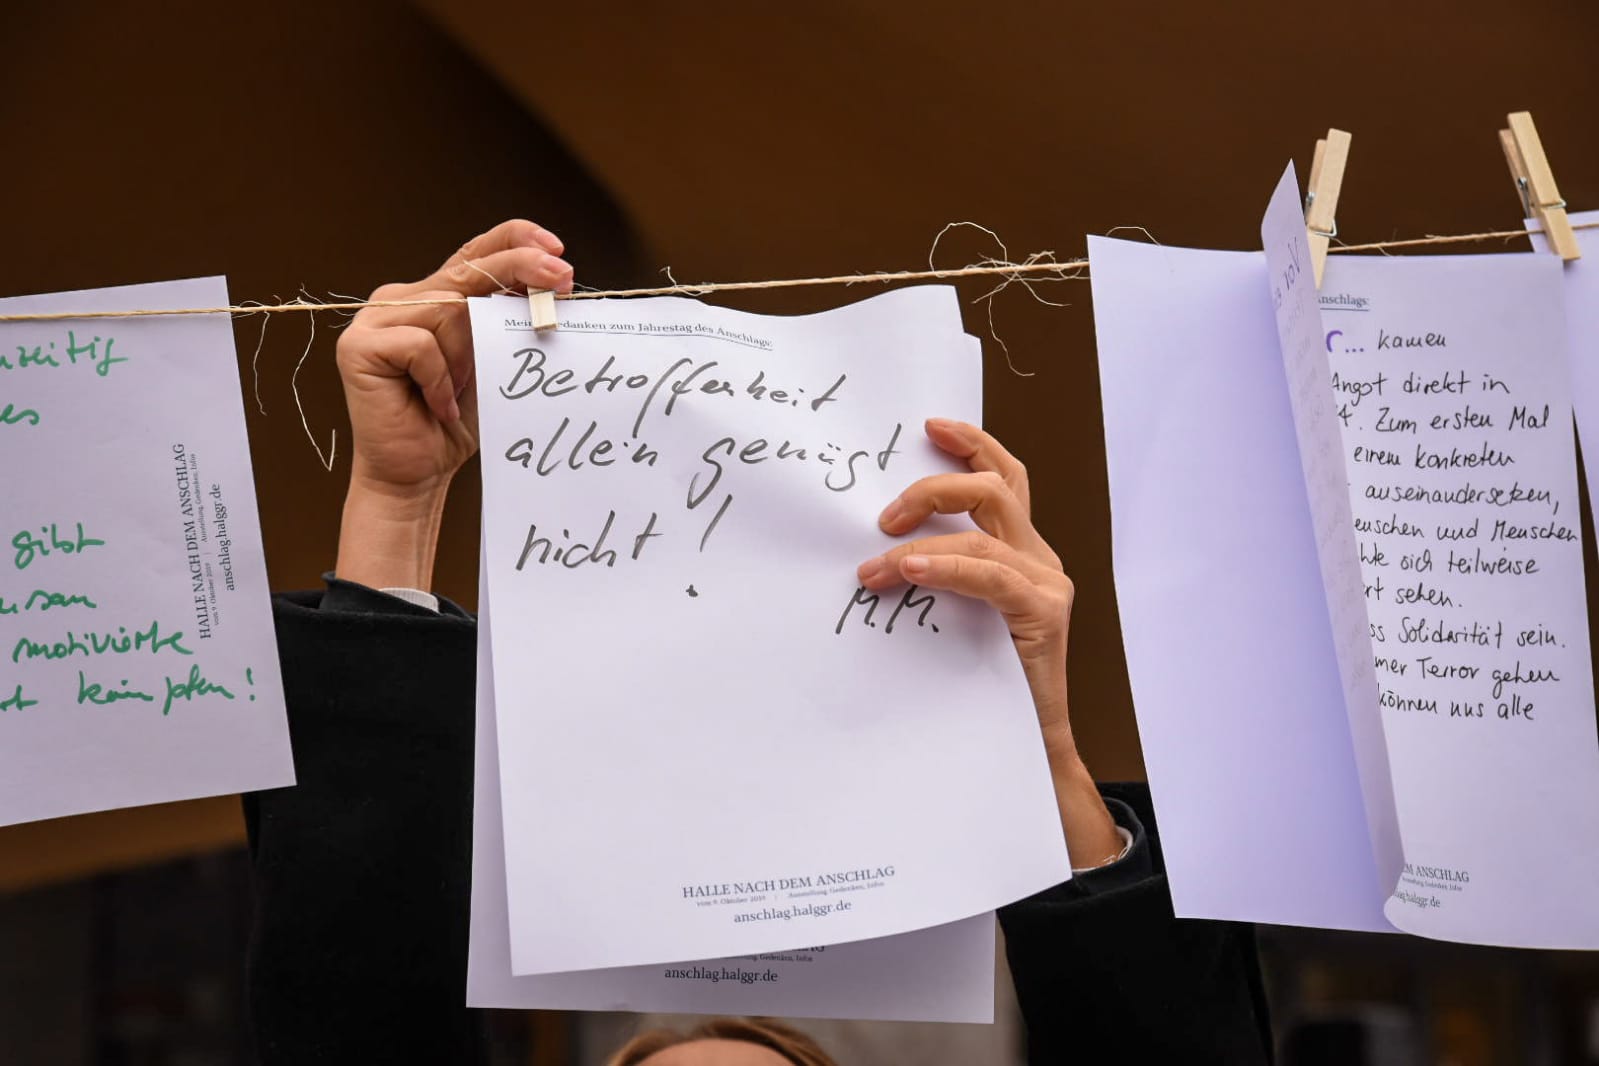 gibt
motivierte
kämpfen!
HALLE NACH DEM ANSCHLAG
vom 9. Oktober 2019 | Ausstellung, Gedenken, Infos
anschlag.halggr.de
danken zum Jahrestag des Anschlags:
Betroffenheit
allein genügt
nicht!
M.M.
HALLE NACH DEM ANSCHLAG
vom 9. Oktober 2019 | Ausstellung, Gedenken, Infos
anschlag.halggr.de
Gedenken, Infos
anschlag.halggr.de
Vor
Anschlags:
... kamen
Angst direkt in
Zum ersten Mal
einem konkreten
auseinandersetzen,
und Menschen
sich teilweise
sehen.
Solidarität sein.
Terror gehen
können uns alle
ANSCHLAG
Ausstellung, Gedenken, Infos